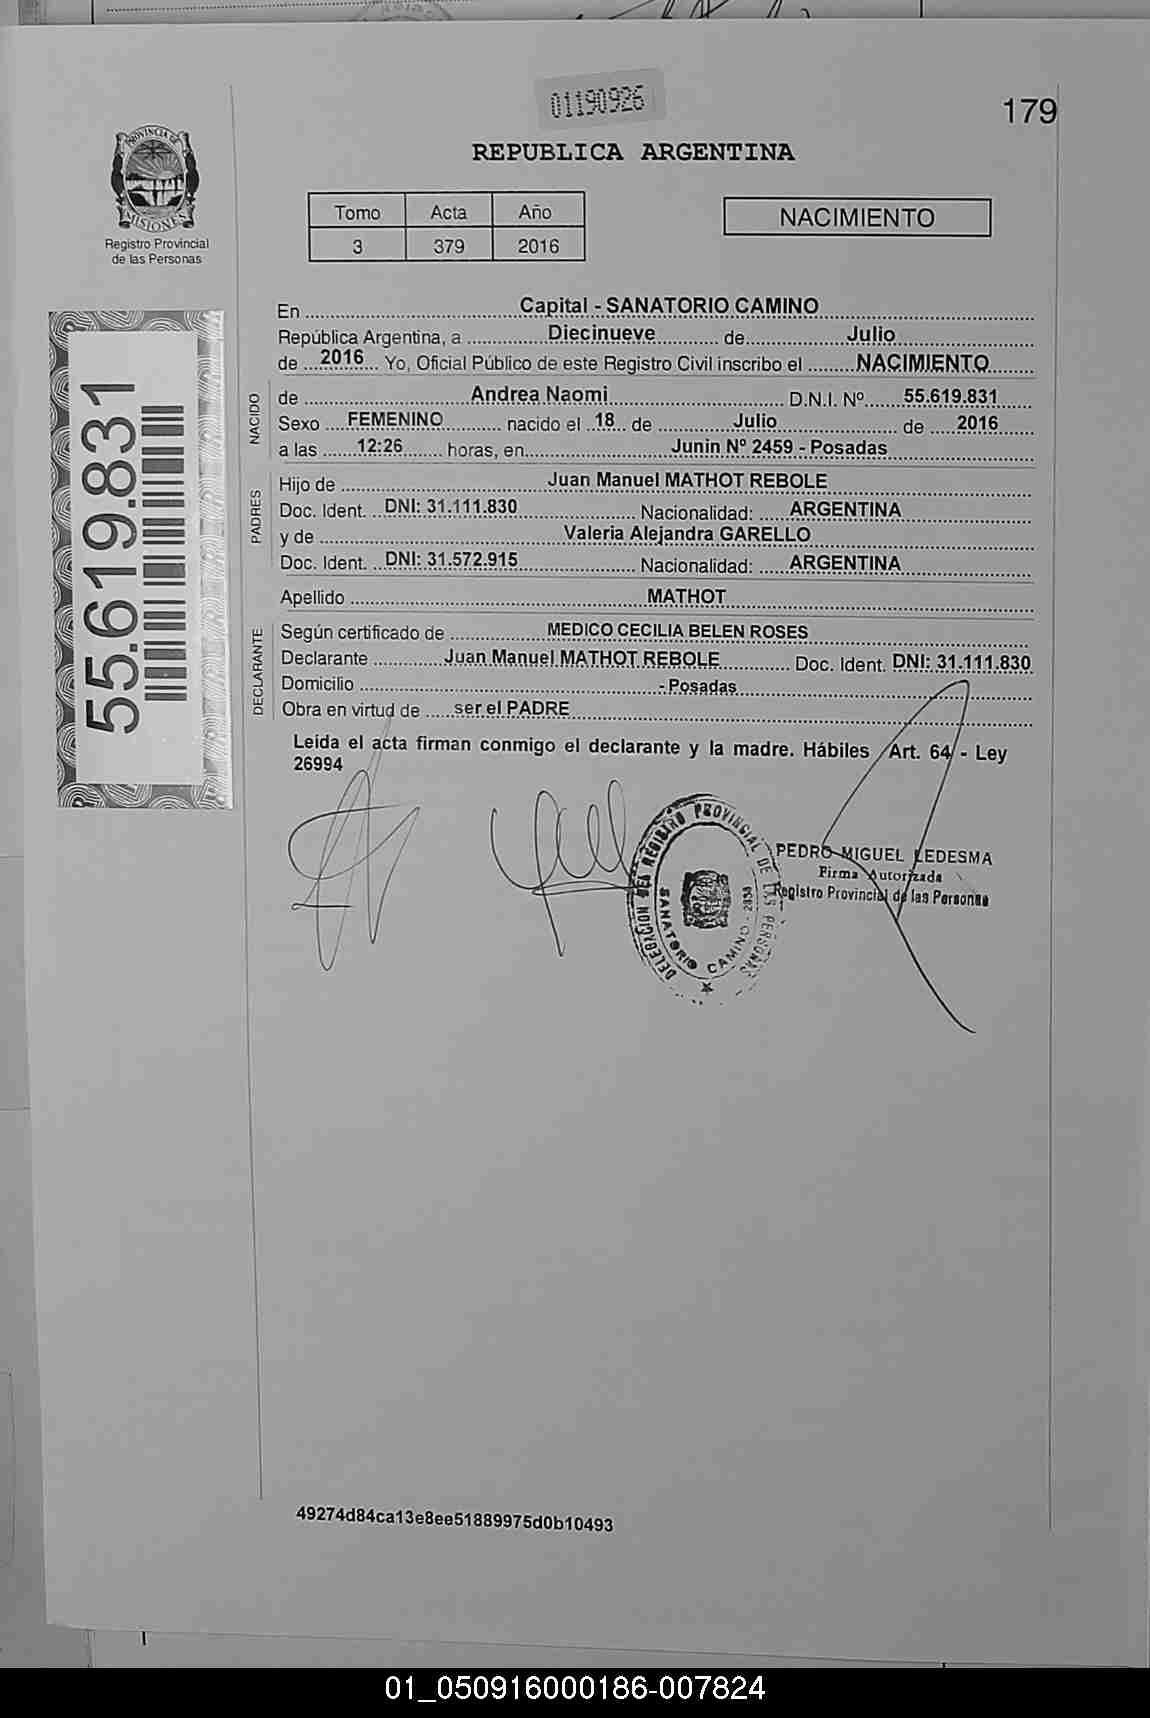 01190926
179
REPUBLICA ARGENTINA
PROVINCIA DE
MISIONES
Registro Provincial
de las Personas
Tomo Acta Año
3 379 2016
NACIMIENTO
55.619.831
En Capital - SANATORIO CAMINO
República Argentina, a Diecinueve de Julio
de 2016 Yo, Oficial Público de este Registro Civil inscribo el NACIMIENTO
NACIDO
de Andrea Naomi D.N.I. Nº 55.619.831
Sexo FEMENINO nacido el 18 de Julio de 2016
a las 12:26 horas, en Junin Nº 2459 - Posadas
PADRES
Hijo de Juan Manuel MATHOT REBOLE
Doc. Ident. DNI: 31.111.830 Nacionalidad: ARGENTINA
y de Valeria Alejandra GARELLO
Doc. Ident. DNI: 31.572.915 Nacionalidad: ARGENTINA
Apellido MATHOT
DECLARANTE
Según certificado de MEDICO CECILIA BELEN ROSES
Declarante Juan Manuel MATHOT REBOLE Doc. Ident. DNI: 31.111.830
Domicilio - Posadas
Obra en virtud de ser el PADRE
Leída el acta firman conmigo el declarante y la madre. Hábiles Art. 64 - Ley
26994
DELEGACION DEL REGISTRO PROVINCIAL DE LAS PERSONAS
SANATORIO CAMINO - 283
PEDRO MIGUEL LEDESMA
Firma Autorizada
Registro Provincial de las Personas
49274d84ca13e8ee51889975d0b10493
01_050916000186-007824